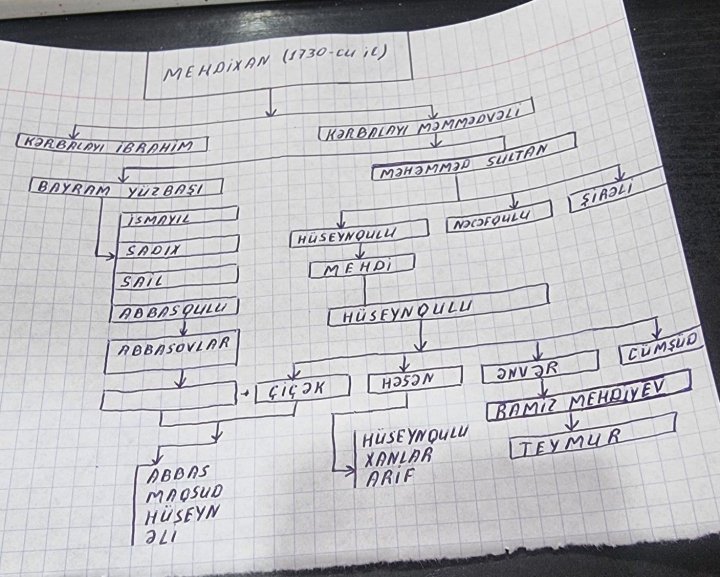 MEHDİXAN (1730-CU İL)
KƏRBALAYI İBRAHİM
KƏRBALAYI MƏMMƏDVƏLİ
BAYRAM YÜZBAŞI
MƏHƏMMƏD SULTAN
İSMAYIL
SADIX
SAİL
ABBASQULU
ABBASOVLAR
HÜSEYNQULU
NƏCƏFQULU
ŞİRƏLİ
MEHDİ
HÜSEYNQULU
+ ÇİÇƏK
HƏSƏN
ƏNVƏR
CÜMŞÜD
RAMİZ MEHDİYEV
TEYMUR
HÜSEYNQULU
XANLAR
ARİF
ABBAS
MAQSUD
HÜSEYN
ƏLİ